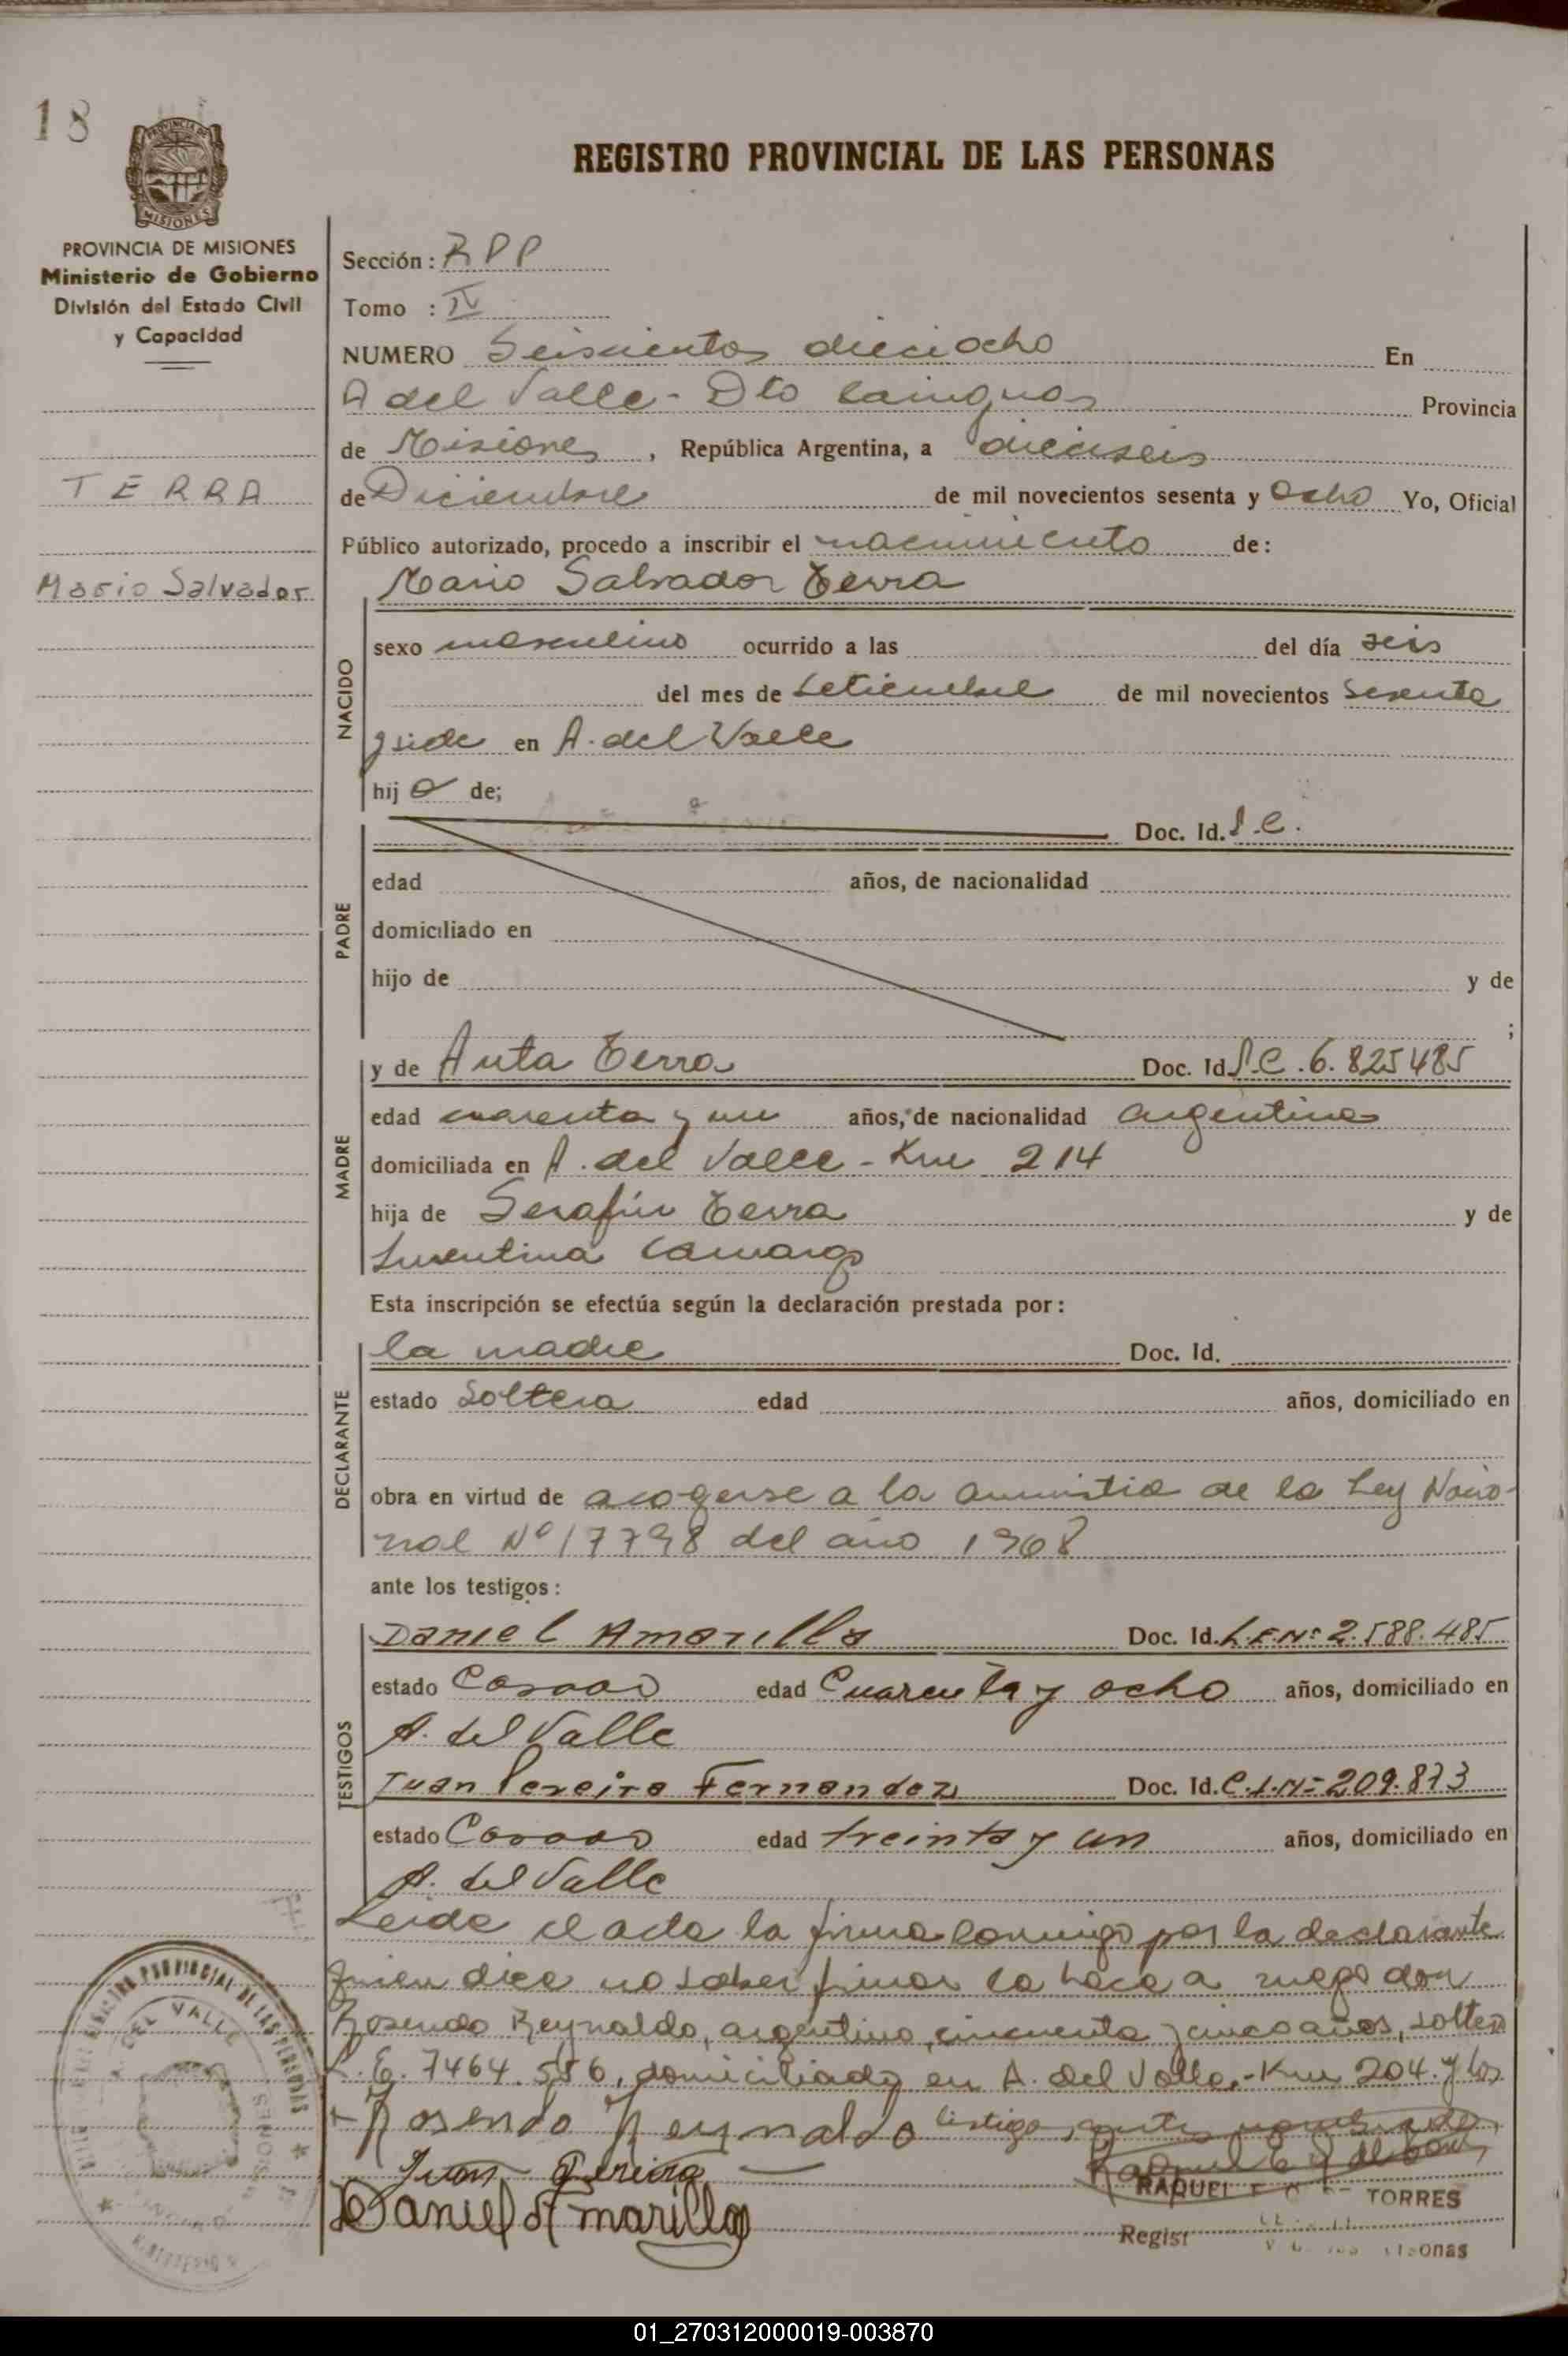 18
REGISTRO PROVINCIAL DE LAS PERSONAS
PROVINCIA DE MISIONES
Ministerio de Gobierno
División del Estado Civil
y Capacidad
TERRA
Mario Salvador
Sección: RPP
Tomo : IV
NUMERO Seiscientos dieciocho En
A del Valle - Dto Cainguas Provincia
de Misiones, República Argentina, a dieciseis
de Diciembre de mil novecientos sesenta y ocho Yo, Oficial
Público autorizado, procedo a inscribir el nacimiento de:
Mario Salvador Terra
NACIDO
sexo masculino ocurrido a las del día seis
del mes de Setiembre de mil novecientos sesenta
y siete en A. del Valle
hijo de;
PADRE
Doc. Id.
edad años, de nacionalidad
domiciliado en
hijo de y de
;
MADRE
y de Anta Terra Doc. Id L.C. 6.825485
edad cuarenta y un años, de nacionalidad argentina
domiciliada en A. del Valle - Km 214
hija de Serafín Terra y de
Camargo
Esta inscripción se efectúa según la declaración prestada por:
DECLARANTE
la madre Doc. Id.
estado Soltera edad años, domiciliado en
obra en virtud de acogerse a la amnistia de la Ley Nacio-
nal Nº 17798 del año 1968
ante los testigos:
TESTIGOS
Daniel Amarilla Doc. Id. L.E.Nº 2.588.485
estado Casado edad Cuarenta y ocho años, domiciliado en
A. del Valle
Juan Pereira Fernandez Doc. Id. C.I.Nº 209.873
estado Casado edad treinta y un años, domiciliado en
A. del Valle
Leida el acta la firma conmigo por la declarante
quien dice no saber firmar lo hace a ruego don
Rosendo Reynaldo, argentino, cincuenta y cinco años, soltero
L.E. 7464.556, domiciliado en A. del Valle,- Km 204. y los
Rosendo Reynaldo testigos antes nombrados
Juan Pereira
Daniel Amarilla
RAQUEL TORRES
01_270312000019-003870